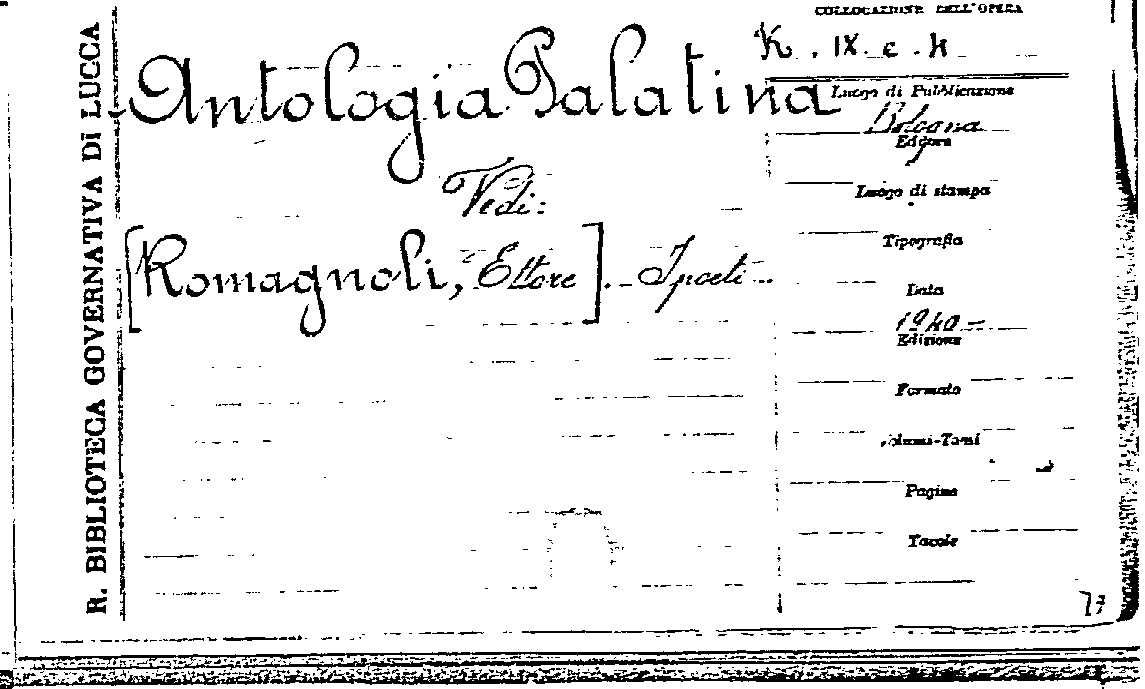 R. BIBLIOTECA GOVERNATIVA DI LUCCA
Antologia Palatina
Vedi:
[Romagnoli, Ettore]. I poeti
COLLOCAZIONE DELL'OPERA
K. IX. c. 4
Luogo di Pubblicazione
Bologna
Editore
Luogo di stampa
Tipografia
Data
1940
Edizione
Formato
Volumi-Tomi
Pagine
Tavole